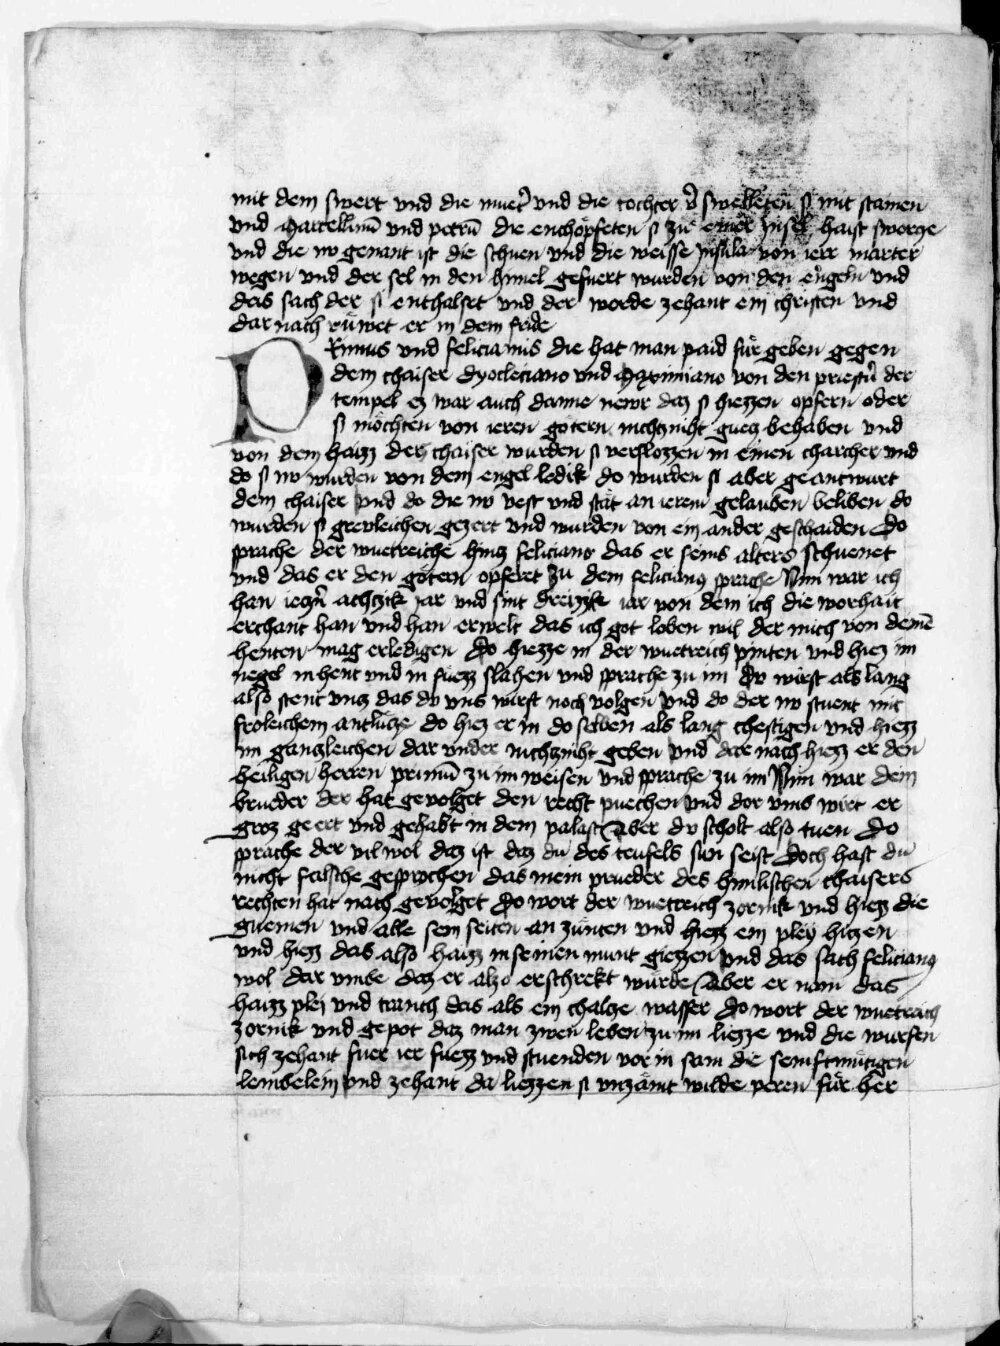 mit dem swert vnd die mueter vnd die tochter v̄swelleten si mit stainen
vnd Marcellinū vnd petrū die enchöpfeten si zue einer Insel haist sworge
vnd die nv genant ist die schuen vnd die weisse Insula von ierr marter
wegen vnd der sel in den himel gefuert wurden von den engeln vnd
das sach der si enthalset vnd der worde zehant ein christen vnd
dar nach ruwet er in dem fride
PRimus vnd felicianus die hat man paid für geben gegen
dem chaiser dyocleciano vnd Maximiano von den priestn̄ der
tempel ez war auch danne newr daz si hiezzen opfern oder
si möchten von ieren gotern nichtzniht guez behaben vnd
von dem haizz der chaiser wurden si verslozzen in einen charcher vnd
do si nv wurden von dem engel ledik do wurden si aber geantwurt
dem chaiser vnd do die nv vest vnd stät an ierem gelauben beliben do
wurden si grewleichen gezert vnd wurden von ein ander geschaiden Do
sprache der wuetreiche hintz feliciano das er seins alters schuenet
vnd das er den götern opferet zu dem felicianus sprache Nim war ich
han ieczn̄ achczik iar vnd sint dreizzk iar von dem ich die worhait
erchant han vnd han erwelt das ich got loben wil der mich von deinē
henten mag erledigen Do hiezze in der wuetreich pinten vnd hiez im
negel in hent vnd in fuezz slahen vnd sprache zu im du wirst als lang
also stent vntz das dv vns wirst noch volgen vnd do der nv stuent mit
froleichem antlutze do hiez er in do selben als lang chestigen vnd hiezz
im gantzleichen dar vnder nichtzniht geben vnd dar nach hiezz er den
heiligen herren primū zu im weisen vnd sprache zu im Nim war dem
brueder der hat gevolget den recht puechen vnd dor vmb wirt er
groz geert vnd gehabt in dem palast Aber dv scholt also tuen Do
sprache der vil wol daz ist daz du des teufels sun seist doch hast du
nicht felsche gesprochen das mein prueder des himlischen chaisers
rechten hat nach gevolget Do wort der wuetreich zornik vnd hiezz die
guemen vnd alle sein seiten an zünten vnd hiezz ein pley hitzen
vnd hiezz das also haizz in seinen munt giezzen vnd das sach felicianus
wol dar vmbe daz er alzo erschrekt wurde Aber er nam das
haizz plei vnd tranch das als ein chalcze wasser Do wort der wuetreich
zornik vnd gepot daz man zwen leben zu im liezze vnd die wurfen
sich zehant fuer ier fuezz vnd stuenden vor in sam die semftmütigen
lembelein vnd zehant da liezzen si vnzämt wilde peren für her